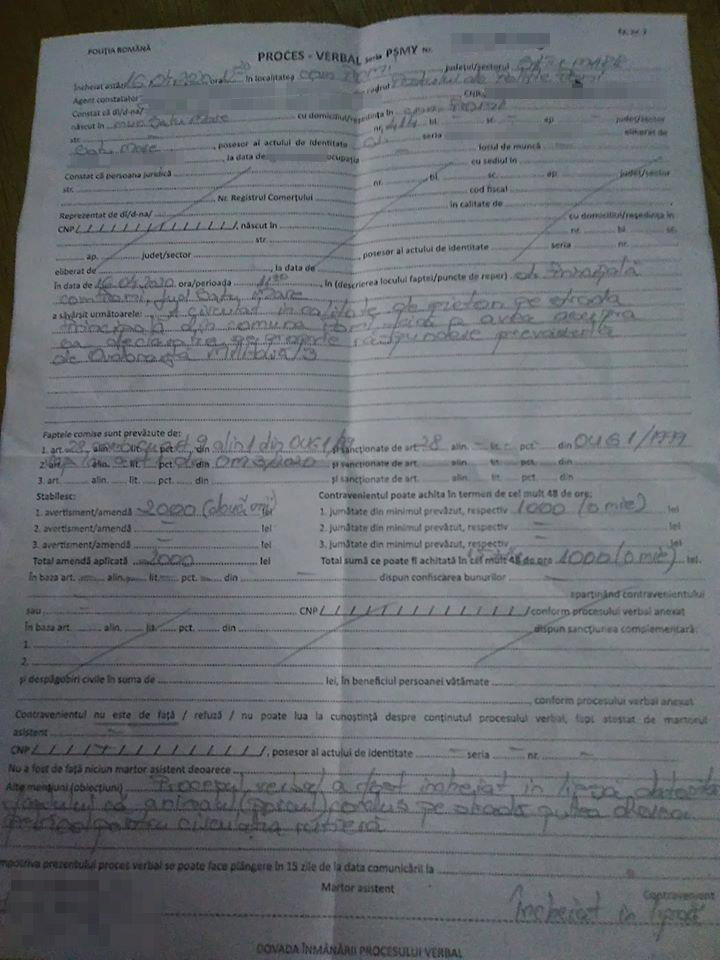 POLIŢIA ROMÂNĂ
PROCES - VERBAL Seria PŞMY Nr.
Încheiat astăzi 16.04.2020 ora în localitatea com. judeţul/sectorul SATU MARE
Agent constatator din cadrul Postului de Poliţie
Constat că dl/d-na/ CNP
născut în mun Satu Mare, cu domiciliul/reşedinţa în com.
str. nr. bl. sc. ap. judeţ/sector
Satu Mare, posesor al actului de identitate seria nr. eliberat de
, la data de ocupaţia locul de muncă
Constat că persoana juridică cu sediul în
str. nr. bl. sc. ap. judeţ/sector
Nr. Registrul Comerţului cod fiscal
Reprezentat de dl/d-na/ în calitate de
CNP / / / / / / / / / / / / /, născut în cu domiciliul/reşedinţa în
str. nr. bl. sc.
ap. judeţ/sector, posesor al actului de identitate seria nr.
eliberat de, la data de
În data de 16.04.2020 ora/perioada, în (descrierea locului faptei/puncte de reper) str. Principală
com. jud Satu Mare
a săvârşit următoarele: A circulat în calitate de pieton pe strada
principală din comuna fără a avea asupra
sa declaraţie pe proprie răspundere prevăzută
de Ordonanţa Militară 3
Faptele comise sunt prevăzute de:
1. art. 28 alin. lit. pct. din alin 1 din OUG 1/99 şi sancţionate de art. 28 alin. - lit. - pct. din OUG 1/1999
2. art. alin. lit. pct. din şi sancţionate de art. alin. lit. pct. din
3. art. alin. lit. pct. din şi sancţionate de art. alin. lit. pct. din
Stabilesc: Contravenientul poate achita în termen de cel mult 48 de ore:
1. avertisment/amendă 2000 (două mii) lei 1. jumătate din minimul prevăzut, respectiv 1000 (o mie) lei
2. avertisment/amendă - lei 2. jumătate din minimul prevăzut, respectiv - lei
3. avertisment/amendă - lei 3. jumătate din minimul prevăzut, respectiv - lei
Total amendă aplicată 2000 lei Total sumă ce poate fi achitată în cel mult 48 de ore 1000 (o mie) lei.
În baza art. alin. lit. pct. din dispun confiscarea bunurilor
aparţinând contravenientului
sau CNP / / / / / / / / / / / / / conform procesului verbal anexat
În baza art. alin. lit. pct. din dispun sancţiunea complementară:
1.
2.
şi despăgubiri civile în suma de lei, în beneficiul persoanei vătămate
, conform procesului verbal anexat
Contravenientul nu este de faţă / refuză / nu poate lua la cunoştinţă despre conţinutul procesului verbal, fapt atestat de martorul
asistent
CNP / / / / / / / / / / / / /, posesor al actului de identitate - seria - nr. -
Nu a fost de faţă niciun martor asistent deoarece
Alte menţiuni (obiecţiuni) Procesul verbal a fost încheiat în lipsă datorită
faptului că animalul (porcul) condus pe stradă putea deveni
pericol pentru circulaţia rutieră
Împotriva prezentului proces verbal se poate face plângere în 15 zile de la data comunicării la
Martor asistent Contravenient
Încheiat în lipsă
DOVADA ÎNMÂNĂRII PROCESULUI VERBAL